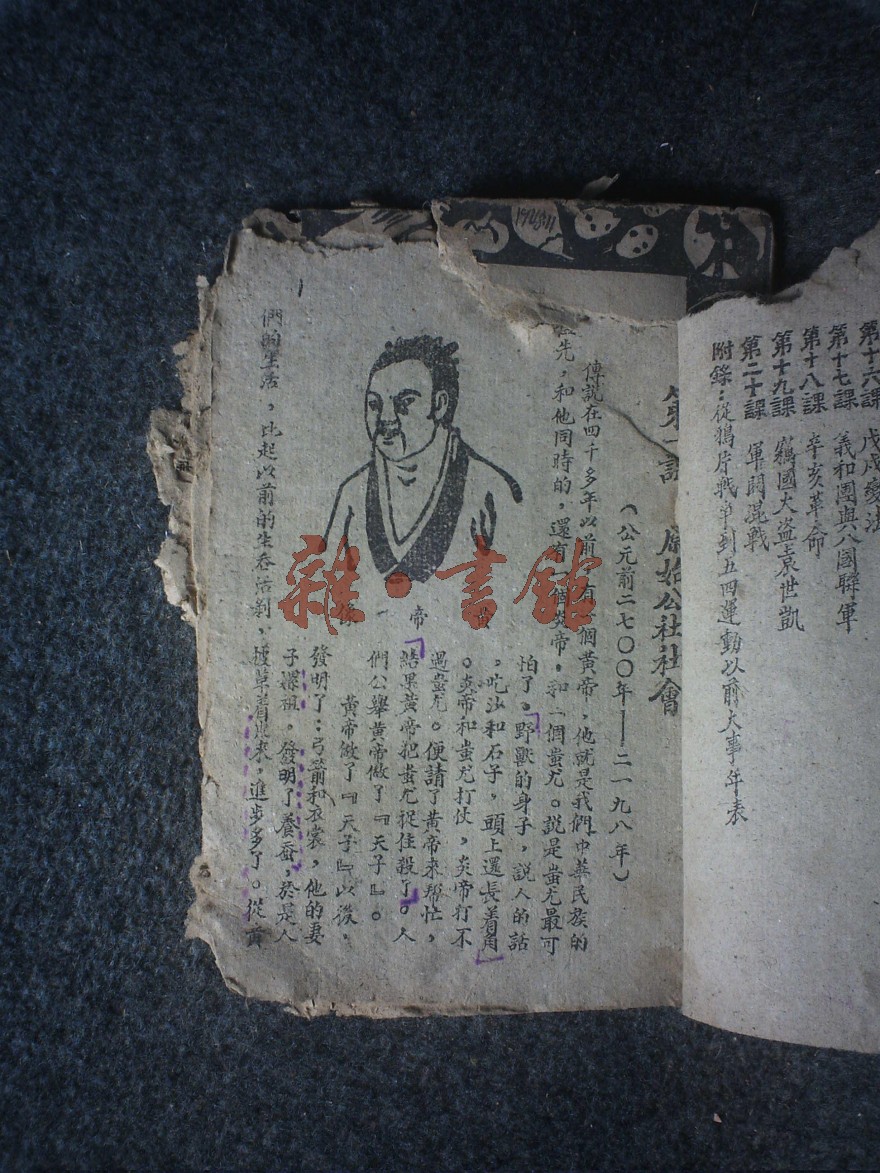 第十六課 戊戌變法
第十七課 義和團與八國聯軍
第十八課 辛亥革命
第十九課 竊國大盜袁世凱
第二十課 軍閥混戰
附錄：從鴉片戰爭到五四運動以前大事年表
第一課 原始公社社會
（公元前二七〇〇年——二一九八年）
傳說在四千多年以前，有個黃帝，他就是我們中華民族的
祖先，和他同時的，還有一個炎帝。和一個蚩尤。說是蚩尤最可
怕了。野獸的身子，說人的話
。吃沙和石子，頭上還長着角
。炎帝和蚩尤打仗，炎帝打不
過蚩尤。便請了黃帝來帮忙，
結果黃帝把蚩尤捉住殺了。人
們公舉黃帝做了『天子』。
黃帝做了『天子』以後。
發明了：弓箭和衣裳，他的妻
子嫘祖。發明了養蚕，於是人
們的生活，比起以前的生吞活剝，披草着
來，進步多了。從黃
黃帝像
雜·書館